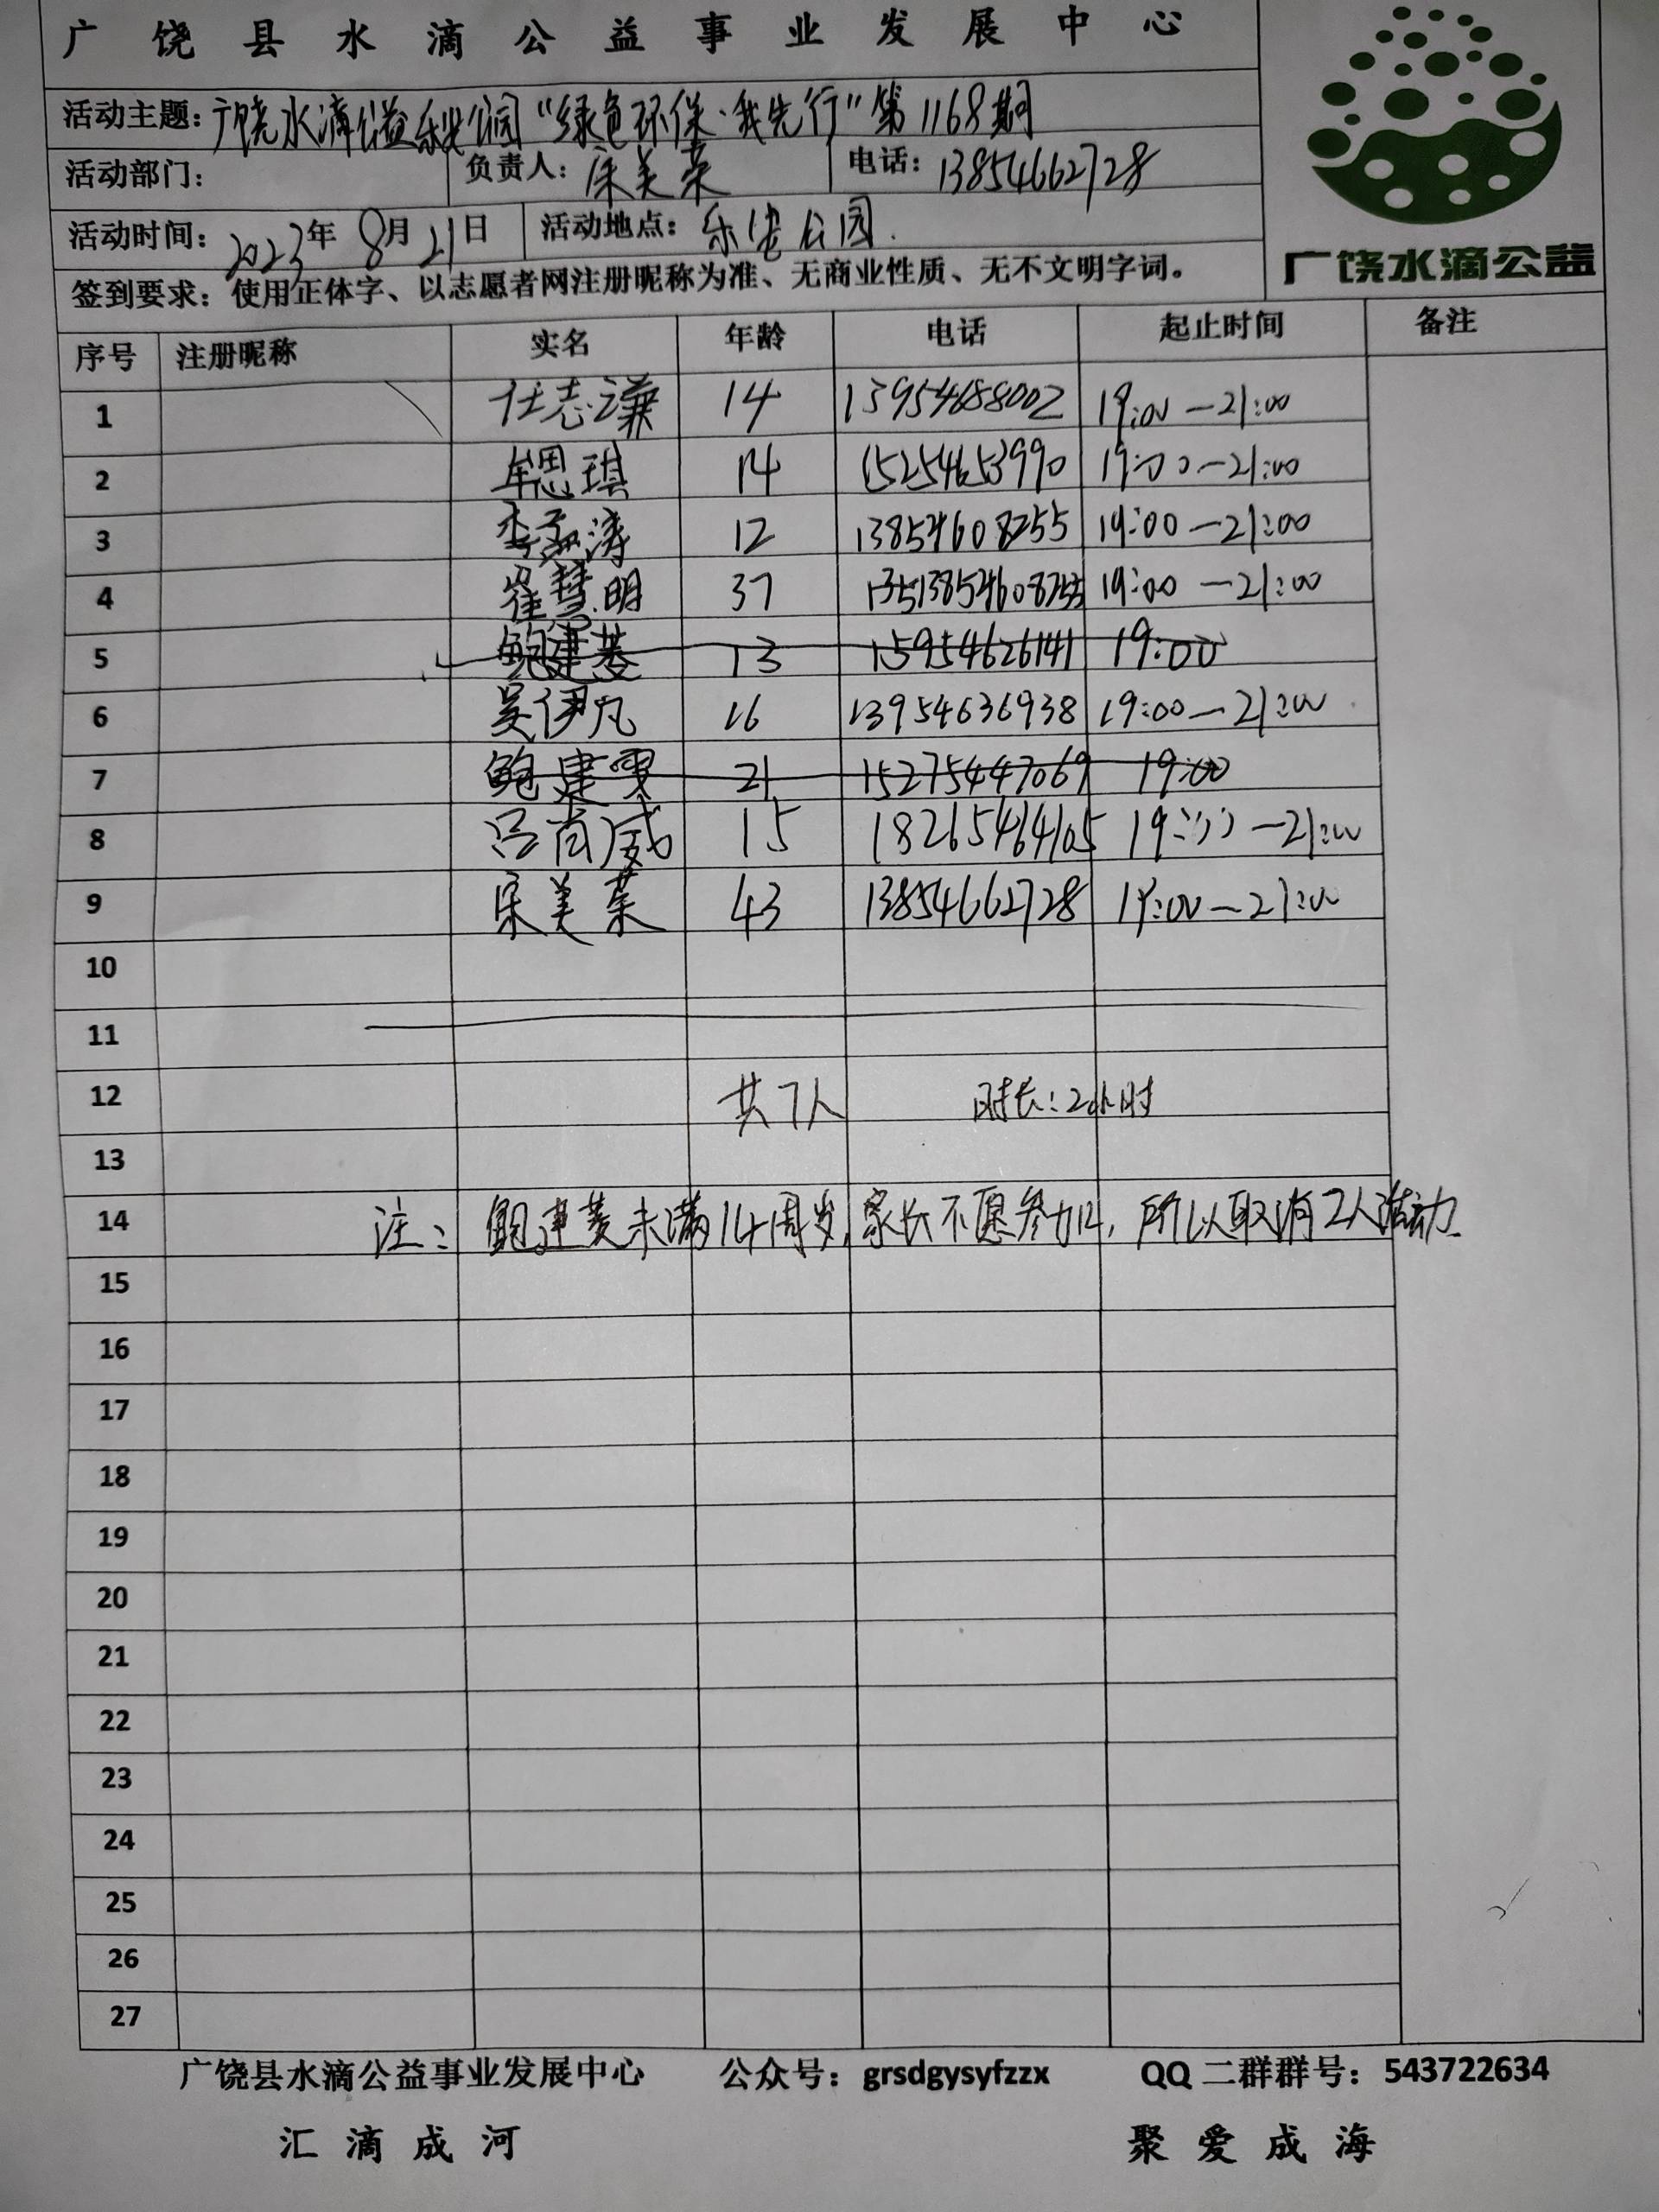 广饶县水滴公益事业发展中心
活动主题：广饶水滴公益乐安公园“绿色环保·我先行”第1168期
广饶水滴公益
活动部门： 负责人：宋美荣 电话：13854662728
活动时间：2023年8月21日 活动地点：乐安公园.
签到要求：使用正体字、以志愿者网注册昵称为准、无商业性质、无不文明字词。
序号 注册昵称 实名 年龄 电话 起止时间 备注
1 任志谦 14 13954688002 19:00—21:00
2 牟思琪 14 15254653990 19:00—21:00
3 12 13854608255 19:00—21:00
4 崔慧明 37 19:00—21:00
5 鲍建菱 13 15954626141 19:00
6 吴伊凡 16 13954636938 19:00—21:00
7 鲍建雯 21 15275447069 19:00
8 吕尚威 15 18265464105 19:00—21:00
9 宋美荣 43 13854662728 19:00—21:00
10
11
12 共7人 时长：2小时
13
14 注：鲍建菱未满14周岁,家长不愿参加,所以取消2人活动.
15
16
17
18
19
20
21
22
23
24
25
26
27
广饶县水滴公益事业发展中心 公众号：grsdgysyfzzx QQ二群群号：543722634
汇滴成河 聚爱成海